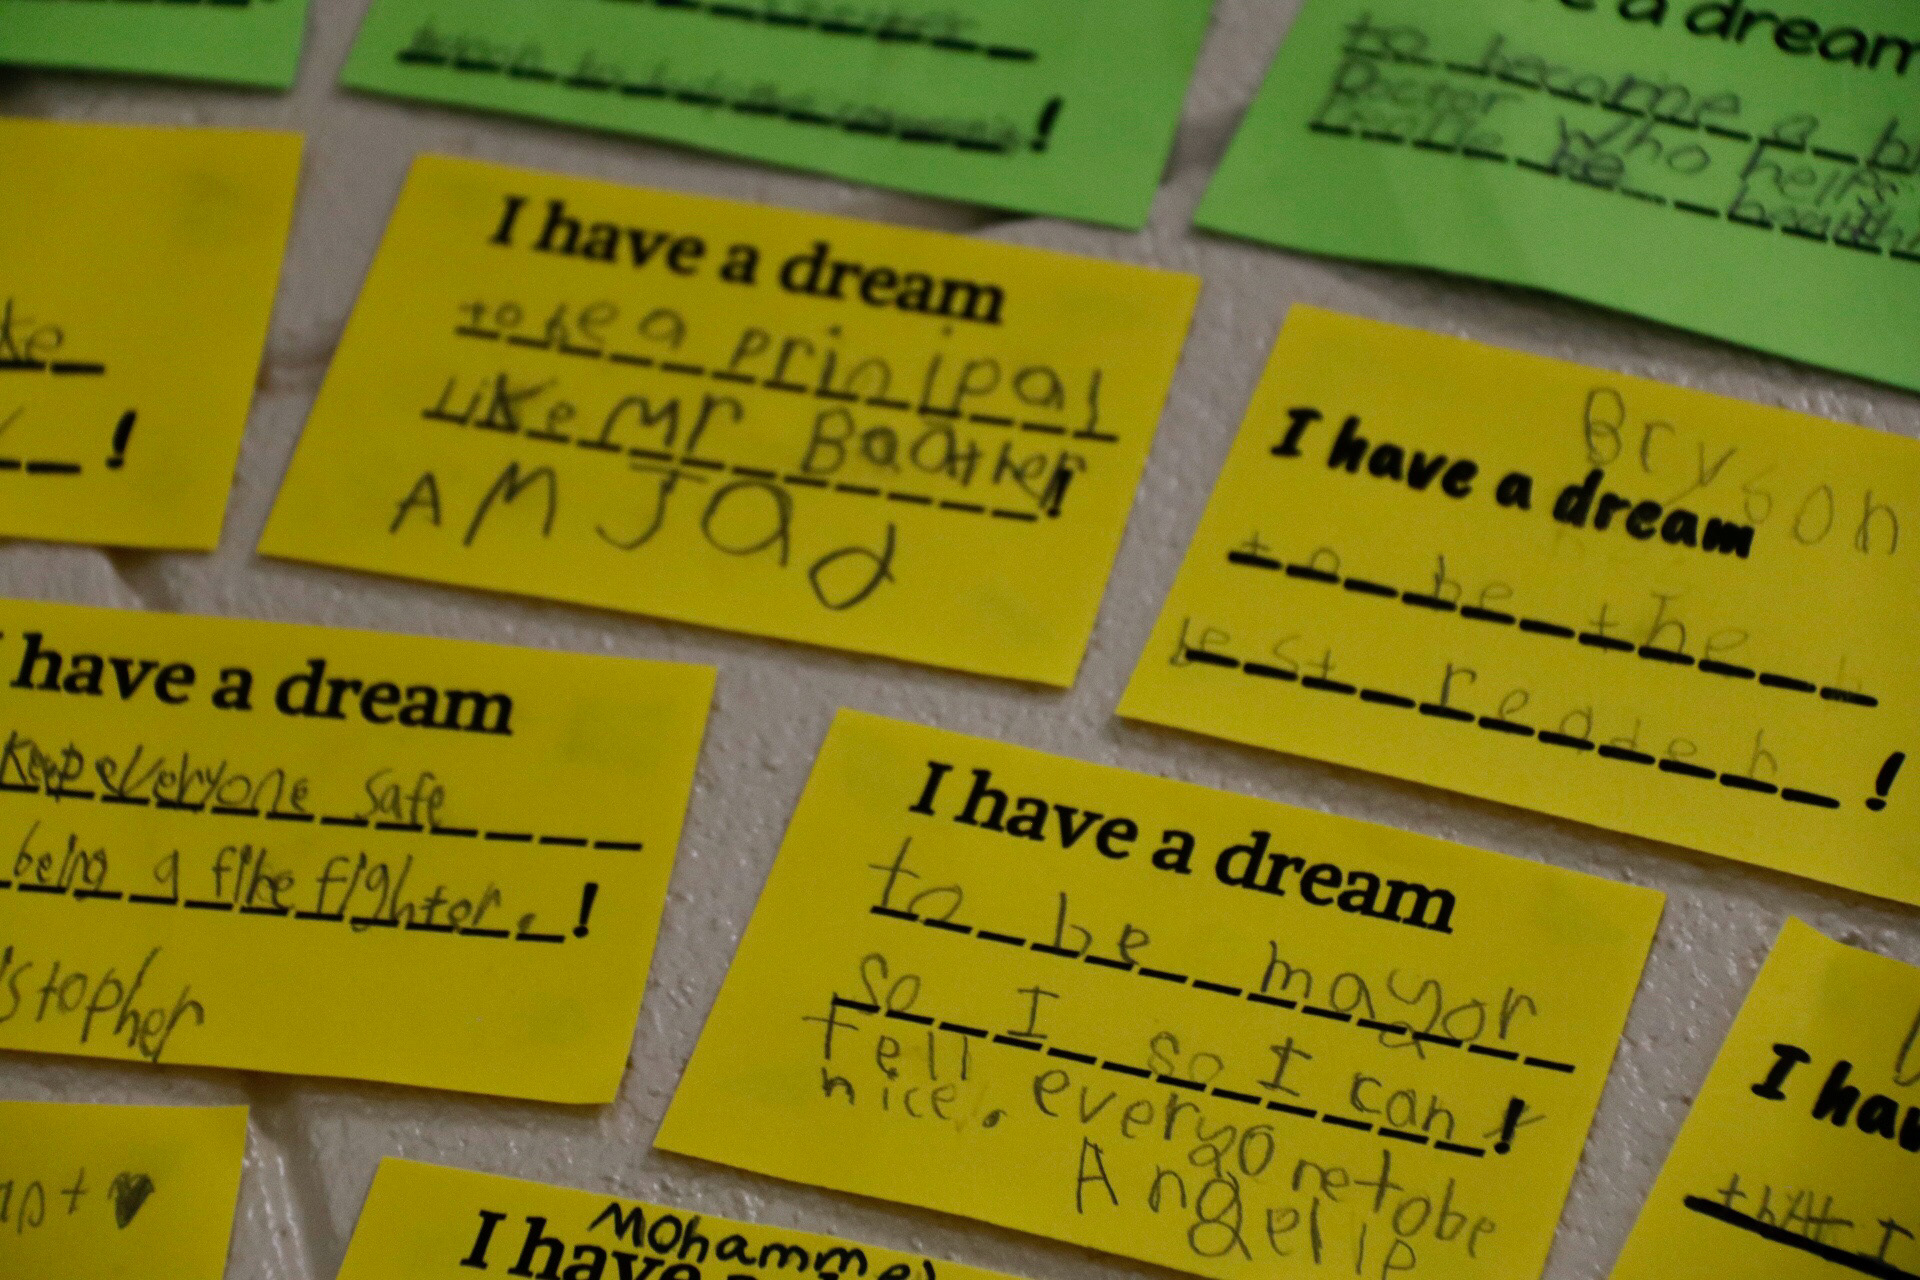 !
e a dream
to become a
Doctor Who helps
People be
ke
!
I have a dream
to be a prinipal
Like Mr Boather!
AMJad
Bryson
I have a dream
to be the b
est reader!
I have a dream
Keep everyone safe
being a fire fighter.!
istopher
I have a dream
to be mayor
so I so I can!
tell everyone to be
nice.
Angelie
I hav
that I
Mohammed
I have